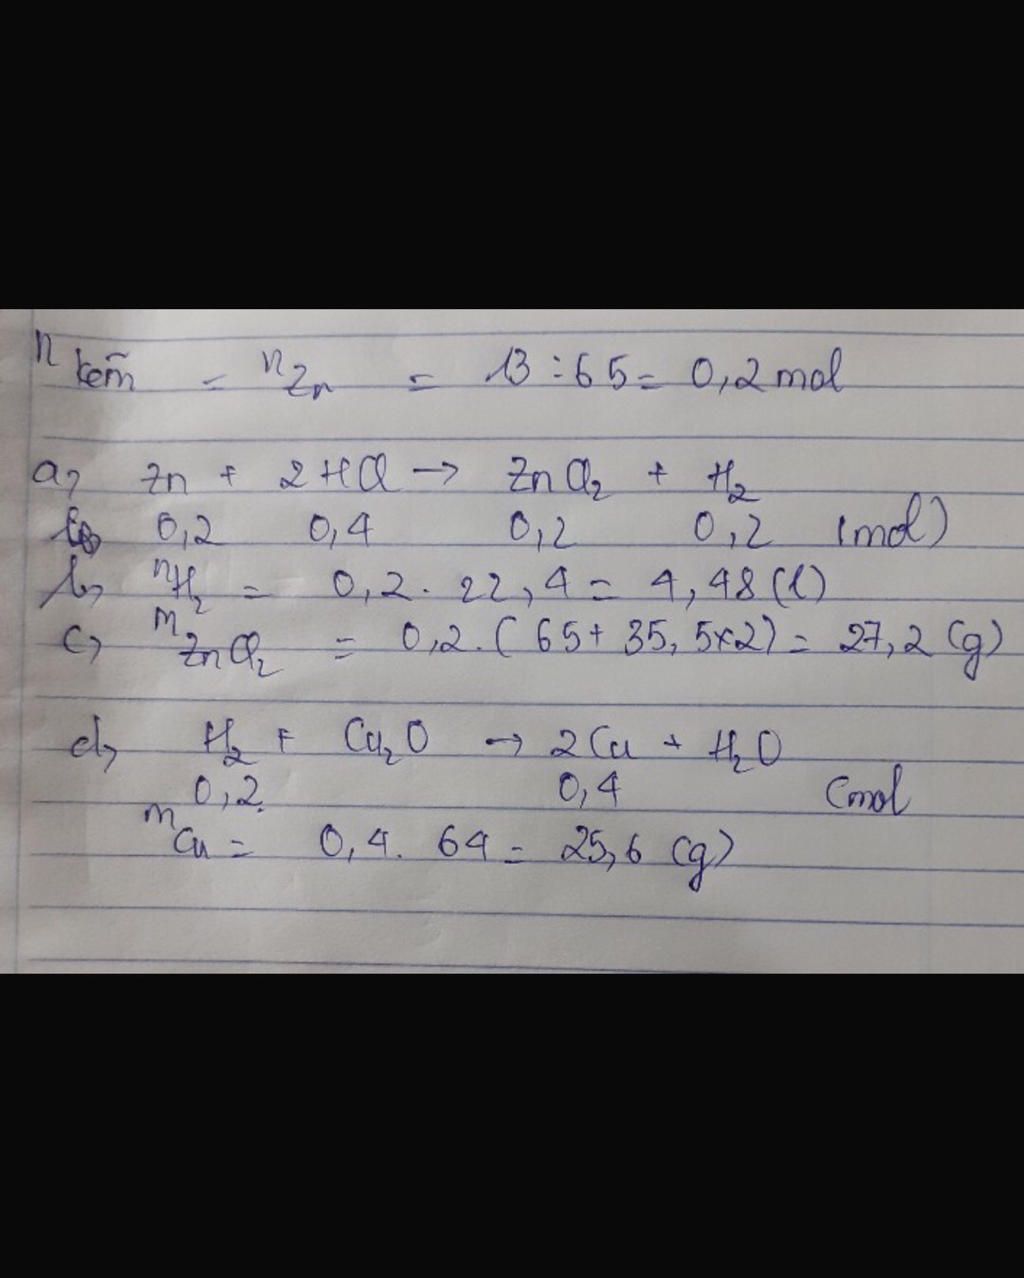 n kẽm = nZn = 13 : 65 = 0,2 mol
a, Zn + 2HCl → ZnCl₂ + H₂
0,2 0,4 0,2 0,2 (mol)
b, nH₂ = 0,2 . 22,4 = 4,48 (l)
c, mZnCl₂ = 0,2 . (65 + 35,5×2) = 27,2 (g)
d, H₂ + Cu₂O → 2Cu + H₂O
0,2 0,4 (mol
mCu = 0,4 . 64 = 25,6 (g)